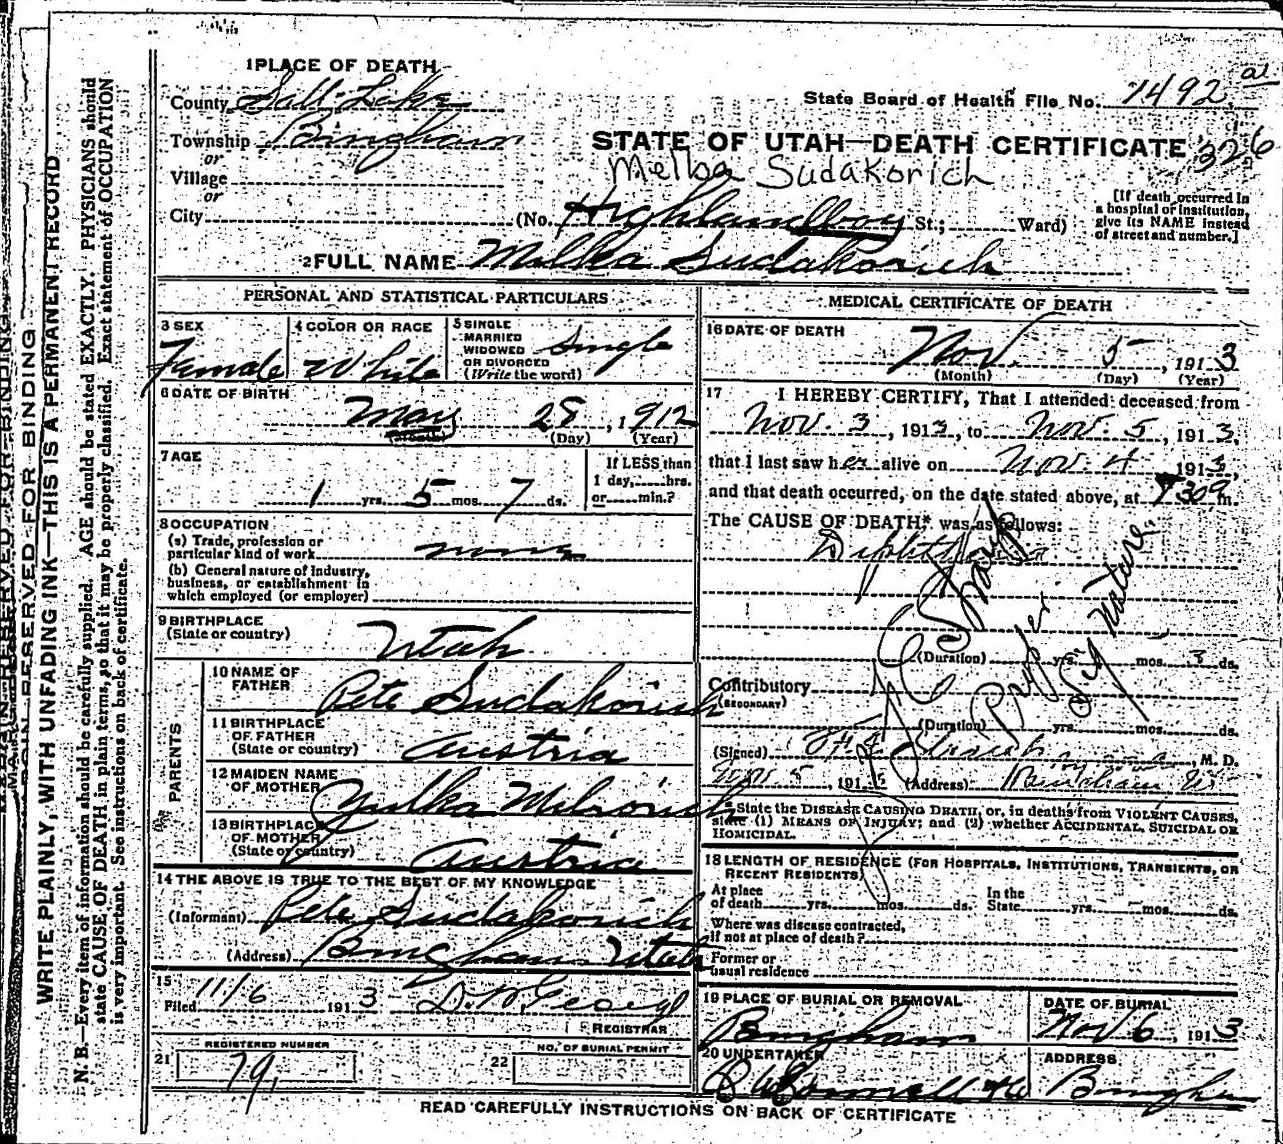 1 PLACE OF DEARTH
County Salt Lake
Township Bingham
or
Village
or
City
(No. Highlandboy St.; Ward)
State Board of Health File No. 1492
326
STATE OF UTAH—DEATH CERTIFICATE
Melba Sudakorich
[If death occurred in
a hospital or institution,
give its NAME instead
of street and number.]
2 FULL NAME Milka Sudakorich
PERSONAL AND STATISTICAL PARTICULARS
3 SEX
Female
4 COLOR OR RACE
White
5 SINGLE
MARRIED
WIDOWED
OR DIVORCED
(Write the word)
Single
6 DATE OF BIRTH
May 28, 1912
(Month) (Day) (Year)
7 AGE
1 yrs. 5 mos. 7 ds.
If LESS than
1 day, hrs.
or min.?
8 OCCUPATION
(a) Trade, profession or
particular kind of work none
(b) General nature of industry,
business, or establishment in
which employed (or employer)
9 BIRTHPLACE
(State or country)
Utah
PARENTS
10 NAME OF
FATHER
Pete Sudakorich
11 BIRTHPLACE
OF FATHER
(State or country)
Austria
12 MAIDEN NAME
OF MOTHER
Yulka
13 BIRTHPLACE
OF MOTHER
(State or country)
Austria
14 THE ABOVE IS TRUE TO THE BEST OF MY KNOWLEDGE
(Informant) Pete Sudakorich
(Address) Bingham Utah
15
Filed 11/6 1913
REGISTRAR
21
REGISTERED NUMBER
79
22
NO. OF BURIAL PERMIT
MEDICAL CERTIFICATE OF DEATH
16 DATE OF DEATH
Nov. 5, 1913
(Month) (Day) (Year)
17 I HEREBY CERTIFY, That I attended deceased from
Nov. 3, 1913, to Nov. 5, 1913,
that I last saw her alive on Nov. 4 1913,
and that death occurred, on the date stated above, at m.
The CAUSE OF DEATH* was as follows:
Diphtheria
(Duration) yrs. mos. 3 ds.
Contributory
(SECONDARY)
(Duration) yrs. mos. ds.
Proper
Signature
(Signed) M. D.
Nov 5, 191 (Address) Bingham
*State the DISEASE CAUSING DEATH, or, in deaths from VIOLENT CAUSES,
state (1) MEANS OF INJURY; and (2) whether ACCIDENTAL, SUICIDAL OR
HOMICIDAL.
18 LENGTH OF RESIDENCE (FOR HOSPITALS, INSTITUTIONS, TRANSIENTS, OR
RECENT RESIDENTS)
At place
of death yrs. mos. ds.
In the
State yrs. mos. ds.
Where was disease contracted,
if not at place of death?
Former or
usual residence
19 PLACE OF BURIAL OR REMOVAL
Bingham
DATE OF BURIAL
Nov 6, 1913
20 UNDERTAKER
ADDRESS
Bingham
READ CAREFULLY INSTRUCTIONS ON BACK OF CERTIFICATE
RESERVED FOR BINDING
WRITE PLAINLY, WITH UNFADING INK—THIS IS A PERMANENT RECORD
N. B.—Every item of information should be carefully supplied. AGE should be stated EXACTLY. PHYSICIANS should
state CAUSE OF DEATH in plain terms, so that it may be properly classified. Exact statement of OCCUPATION
is very important. See instructions on back of certificate.